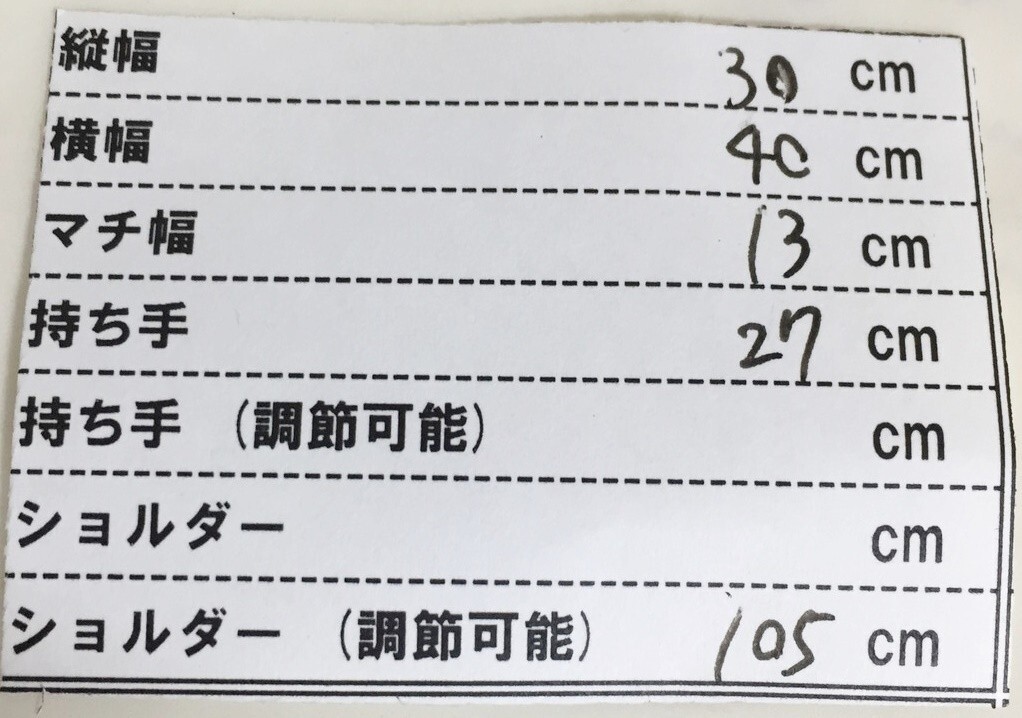 縦幅 30 cm
横幅 40 cm
マチ幅 13 cm
持ち手 27 cm
持ち手 (調節可能) cm
ショルダー cm
ショルダー (調節可能) 105 cm